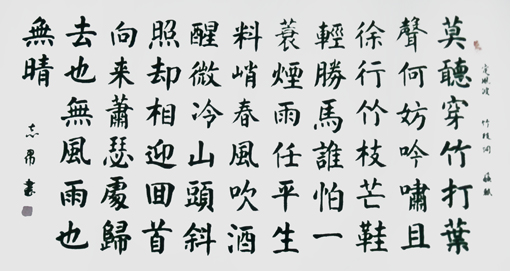 定風波 竹枝詞 蘇軾
莫聽穿竹打葉
聲何妨吟嘯且
徐行竹枝芒鞋
輕勝馬誰怕一
蓑煙雨任平生
料峭春風吹酒
醒微冷山頭斜
照却相迎回首
向来蕭瑟處歸
去也無風雨也
無晴